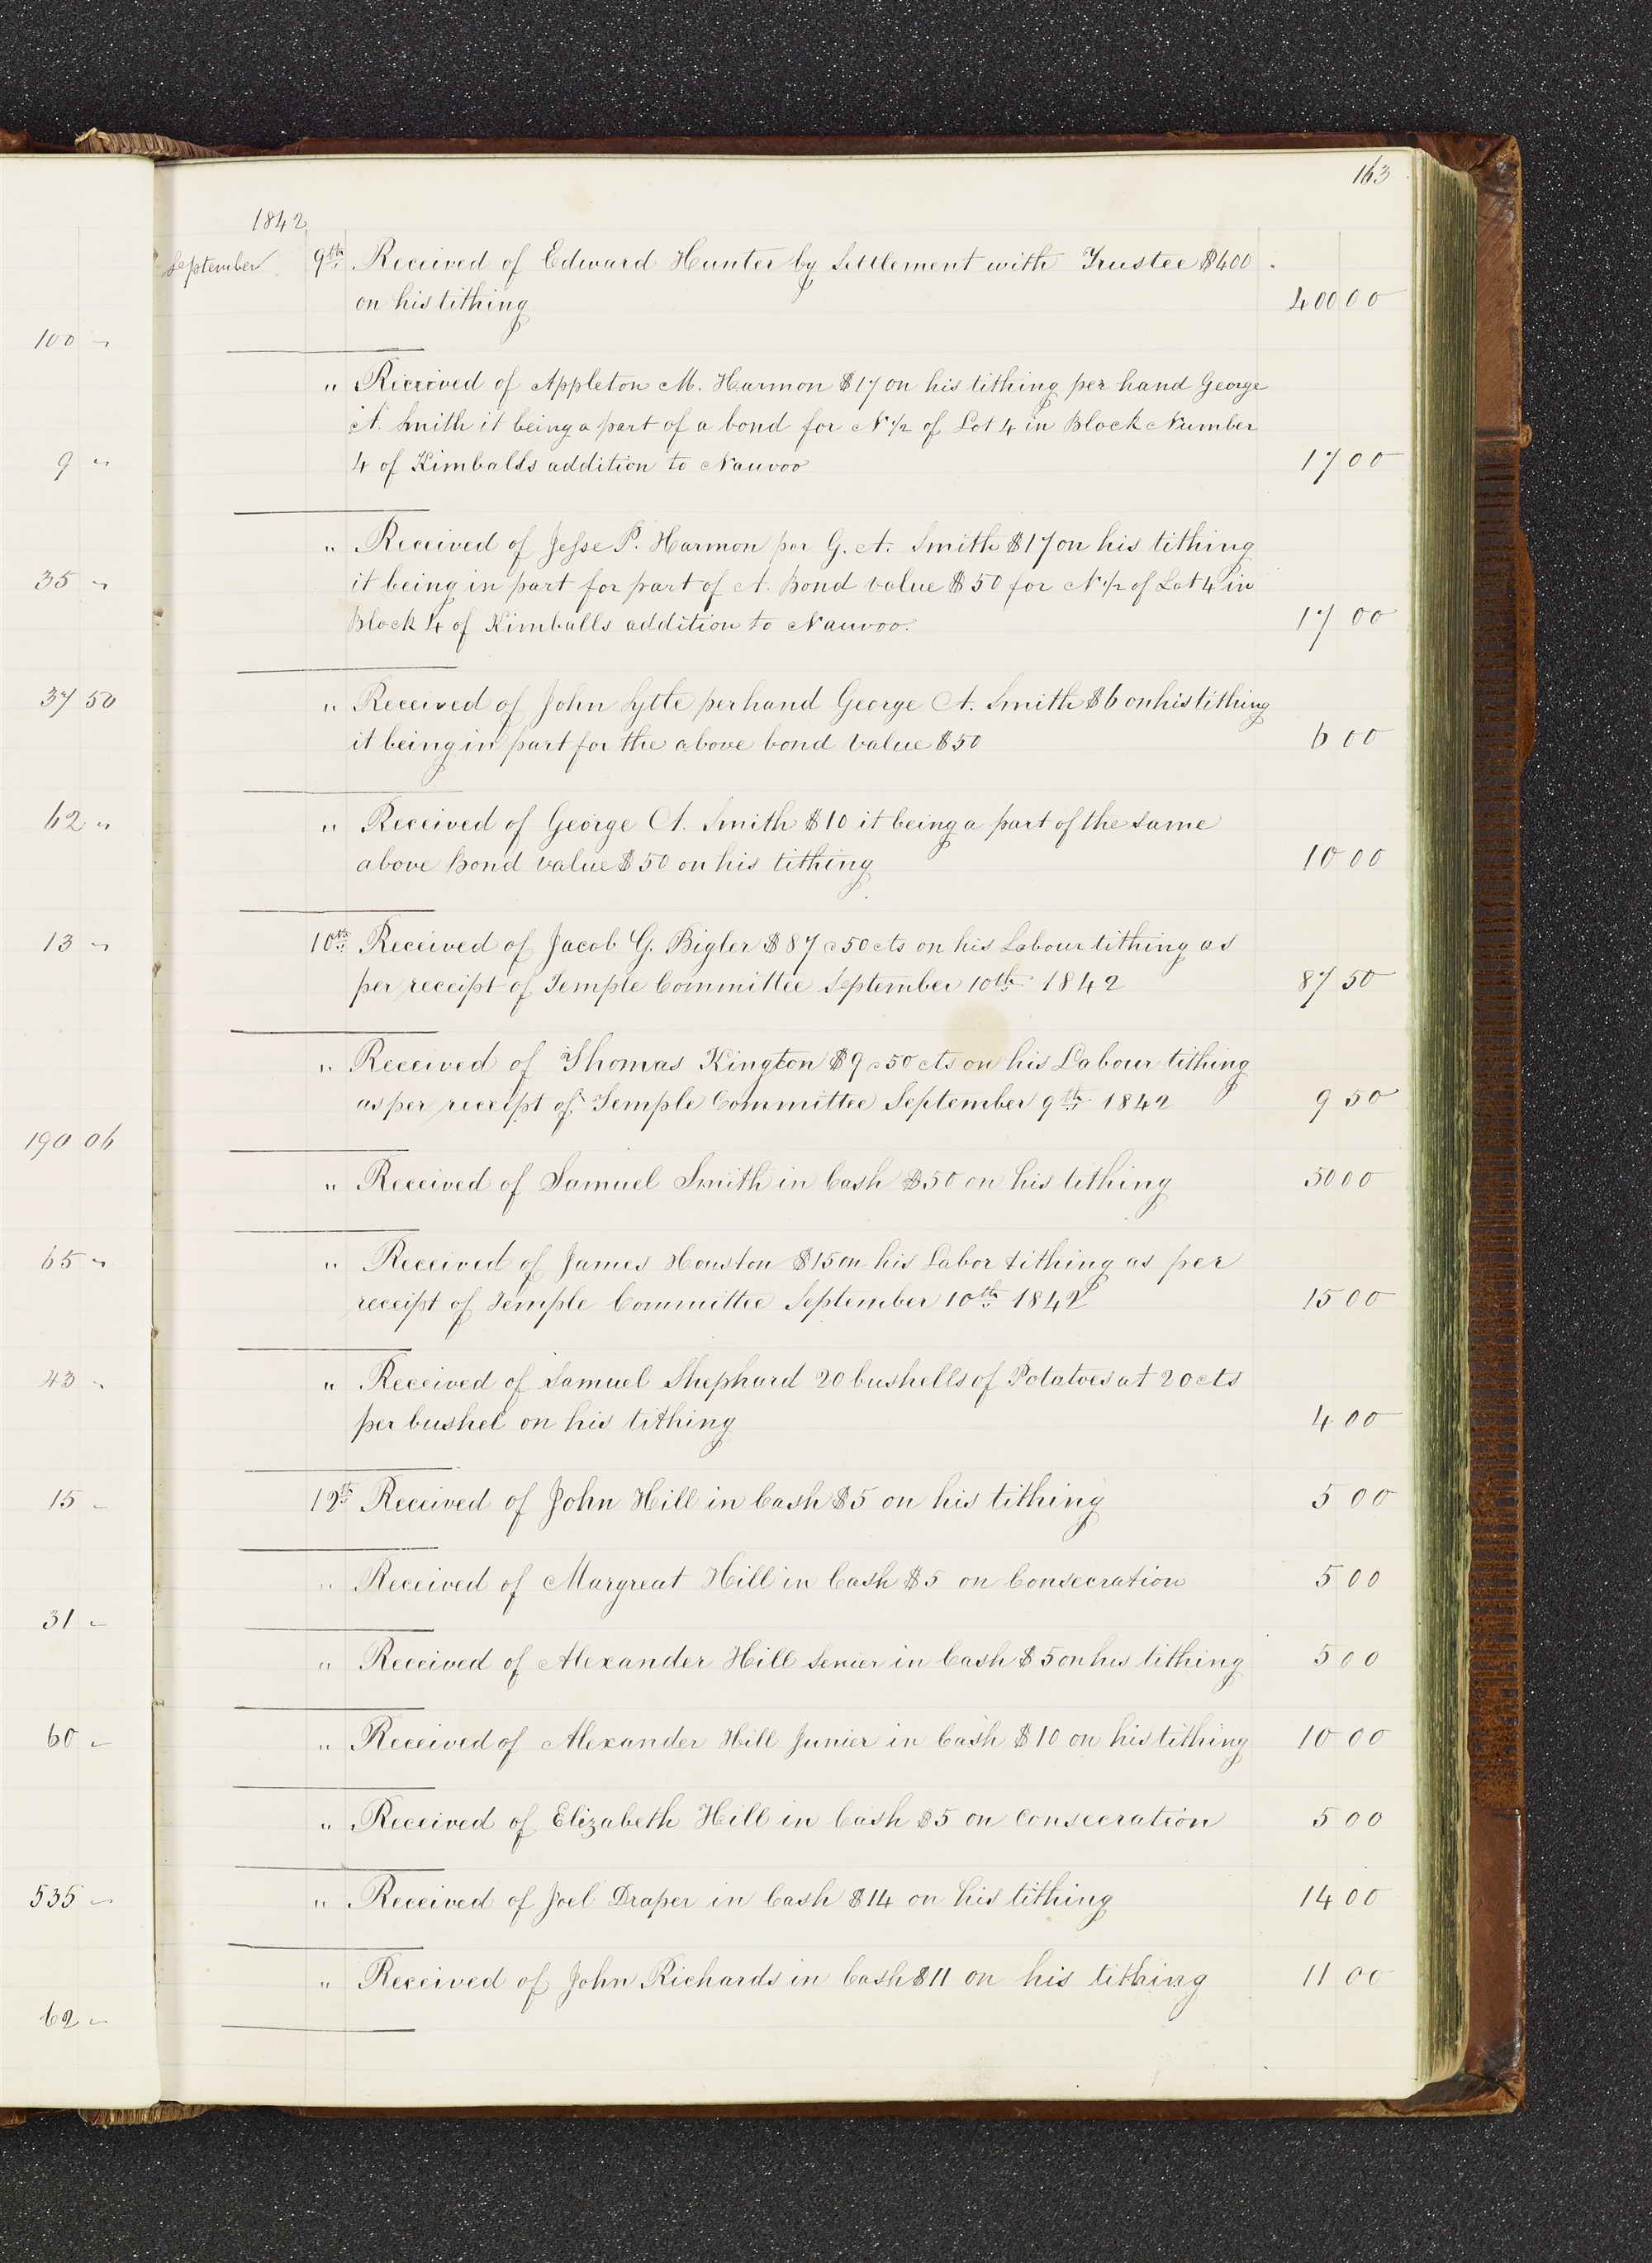 163
1842
September 9th Received of Edward Hunter by Settlement with Trustee $400
on his tithing 400 00
" Received of Appleton M. Harmon $17 on his tithing per hand George
A. Smith it being a part of a bond for N 1/2 of Lot 4 in Block Number
4 of Kimballs addition to Nauvoo 17 00
" Received of Jesse P. Harmon per G. A. Smith $17 on his tithing
it being in part for part of A. Bond value $50 for N 1/2 of Lot 4 in
Block 4 of Kimballs addition to Nauvoo. 17 00
" Received of John Lytle per hand George A. Smith $6 on his tithing
it being in part for the above bond value $50 6 00
" Received of George A. Smith $10 it being a part of the same
above Bond value $50 on his tithing 10 00
10th Received of Jacob G. Bigler $87 " 50 cts on his Labour tithing as
per receipt of Temple Committee September 10th 1842 87 50
" Received of Thomas Kington $9 " 50 cts on his Labour tithing
as per receipt of Temple Committee September 9th 1842 9 50
" Received of Samuel Smith in Cash $50 on his tithing 50 00
" Received of James Houston $15 on his Labor tithing as per
receipt of Temple Committee September 10th 1842 15 00
" Received of Samuel Shephard 20 bushells of Potatoes at 20 cts
per bushel on his tithing 4 00
12th Received of John Hill in Cash $5 on his tithing 5 00
" Received of Margreat Hill in Cash $5 on Consecration 5 00
" Received of Alexander Hill Senier in Cash $5 on his tithing 5 00
" Received of Alexander Hill Junier in Cash $10 on his tithing 10 00
" Received of Elizabeth Hill in Cash $5 on Consecration 5 00
" Received of Joel Draper in Cash $14 on his tithing 14 00
" Received of John Richards in Cash $11 on his tithing 11 00
100 "
9 "
35 "
37 50
62 "
13 "
190 06
65 "
43 "
15 "
31 "
60 "
535 "
62 "